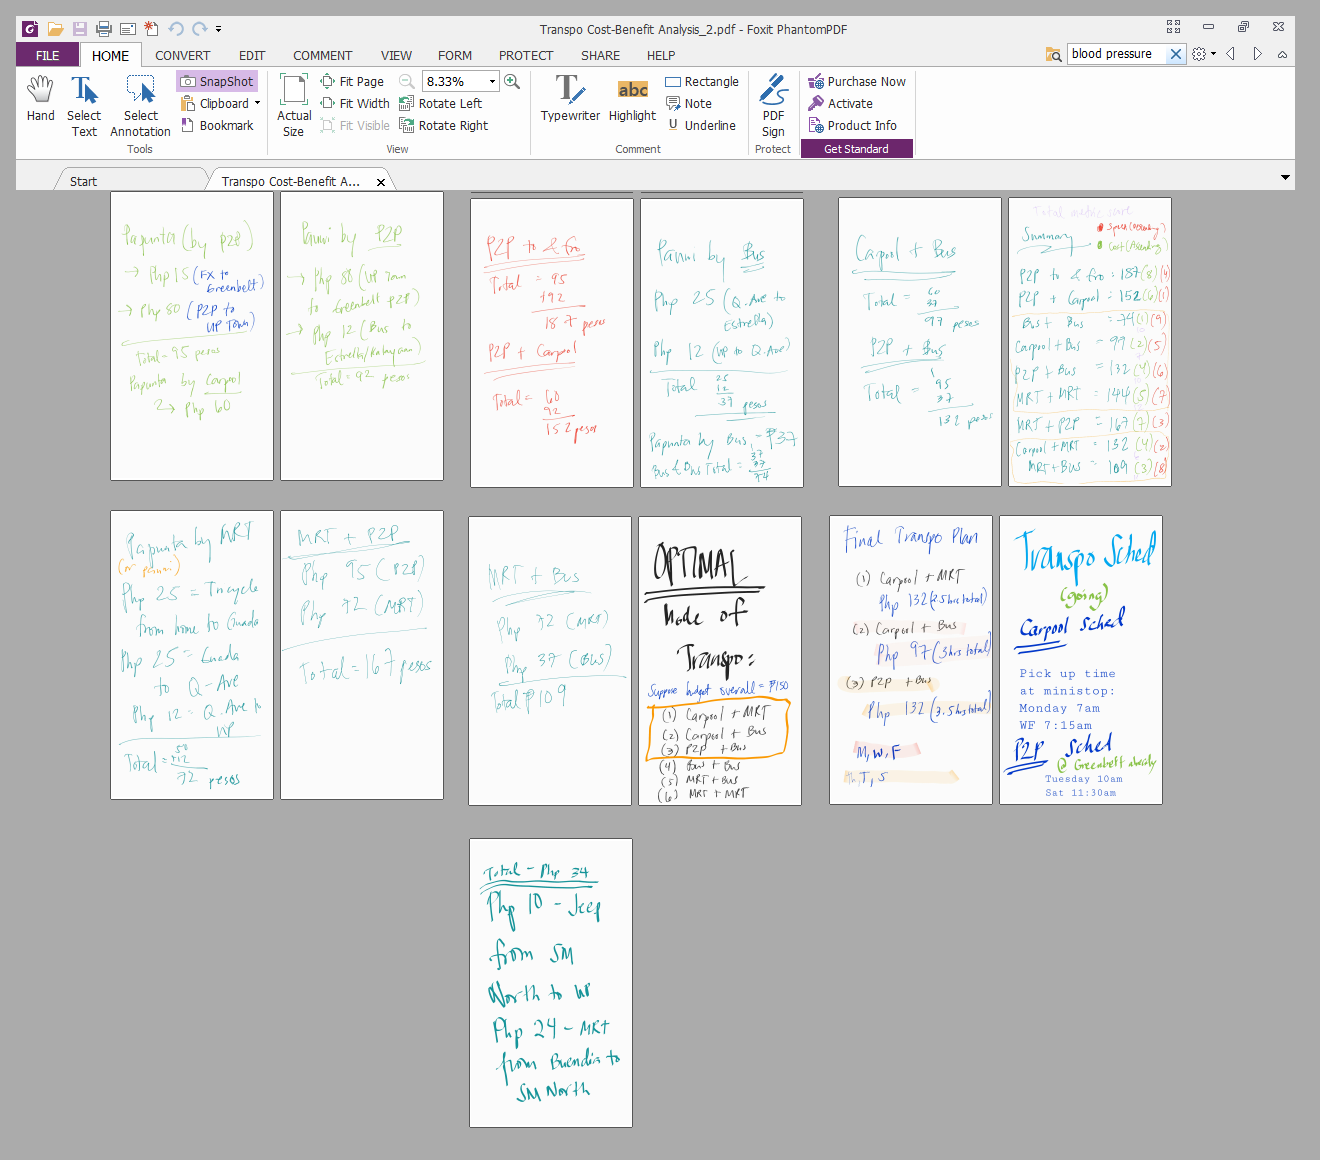 Transpo Cost-Benefit Analysis_2.pdf - Foxit PhantomPDF
FILE HOME CONVERT EDIT COMMENT VIEW FORM PROTECT SHARE HELP
blood pressure
Hand
Select Text
Select Annotation
SnapShot
Clipboard
Bookmark
Tools
Actual Size
Fit Page
Fit Width
Fit Visible
8.33%
Rotate Left
Rotate Right
View
Typewriter
Highlight
Rectangle
Note
Underline
Comment
PDF Sign
Protect
Purchase Now
Activate
Product Info
Get Standard
Start
Transpo Cost-Benefit A...
Papunta (by P2P)
→ Php 15 (FX to
Greenbelt)
→ Php 80 (P2P to
UP Town)
Total - 95 pesos
Papunta by Carpool
→ Php 60
Pauwi by P2P
→ Php 80 (UP Town
to Greenbelt P2P)
→ Php 12 (Bus to
Estrella/Kalayaan)
Total = 92 pesos
P2P to & fro
Total = 95
+92
187 pesos
P2P + Carpool
Total = 60
92
152 pesos
Pauwi by Bus
Php 25 (Q. Ave to
Estrella)
Php 12 (UP to Q. Ave)
Total 25
12
37 pesos
Papunta by Bus = ₱37
Bus & Bus Total = 37
37
74
Carpool + Bus
Total = 60
37
97 pesos
P2P + Bus
Total = 95
37
132 pesos
Summary
Speed (Ascending)
Cost (Ascending)
P2P to & fro : 187 (8) (4)
P2P + Carpool = 152 (6) (1)
Bus + Bus = 74 (1) (9)
Carpool + Bus = 97 (2) (5)
P2P + Bus = 132 (4) (6)
MRT + MRT = 144 (5) (7)
MRT + P2P = 167 (7) (3)
Carpool + MRT = 132 (4) (2)
MRT + Bus = 109 (3) (8)
Papunta by MRT
(or pauwi)
Php 25 = Tricycle
from home to Guada
Php 25 = Guada
to Q-Ave
Php 12 = Q. Ave to
UP
Total = 50
+12
72 pesos
MRT + P2P
Php 95 (P2P)
Php 72 (MRT)
Total = 167 pesos
MRT + Bus
Php 72 (MRT)
Php 37 (BUS)
Total ₱109
OPTIMAL
Mode of
Transpo:
Suppose budget overall = ₱150
(1) Carpool + MRT
(2) Carpool + Bus
(3) P2P + Bus
(4) Bus + Bus
(5) MRT + Bus
(6) MRT + MRT
Final Transpo Plan
(1) Carpool + MRT
Php 132 (2.5 hrs total)
(2) Carpool + Bus
Php 97 (3 hrs total)
(3) P2P + Bus
Php 132 (3.5 hrs total)
M, W, F
T, S
Transpo Sched
(going)
Carpool Sched
Pick up time
at ministop:
Monday 7am
WF 7:15am
P2P Sched
@ Greenbelt already
Tuesday 10am
Sat 11:30am
Total - Php 34
Php 10 - Jeep
from SM
North to UP
Php 24 - MRT
from Buendia to
SM North